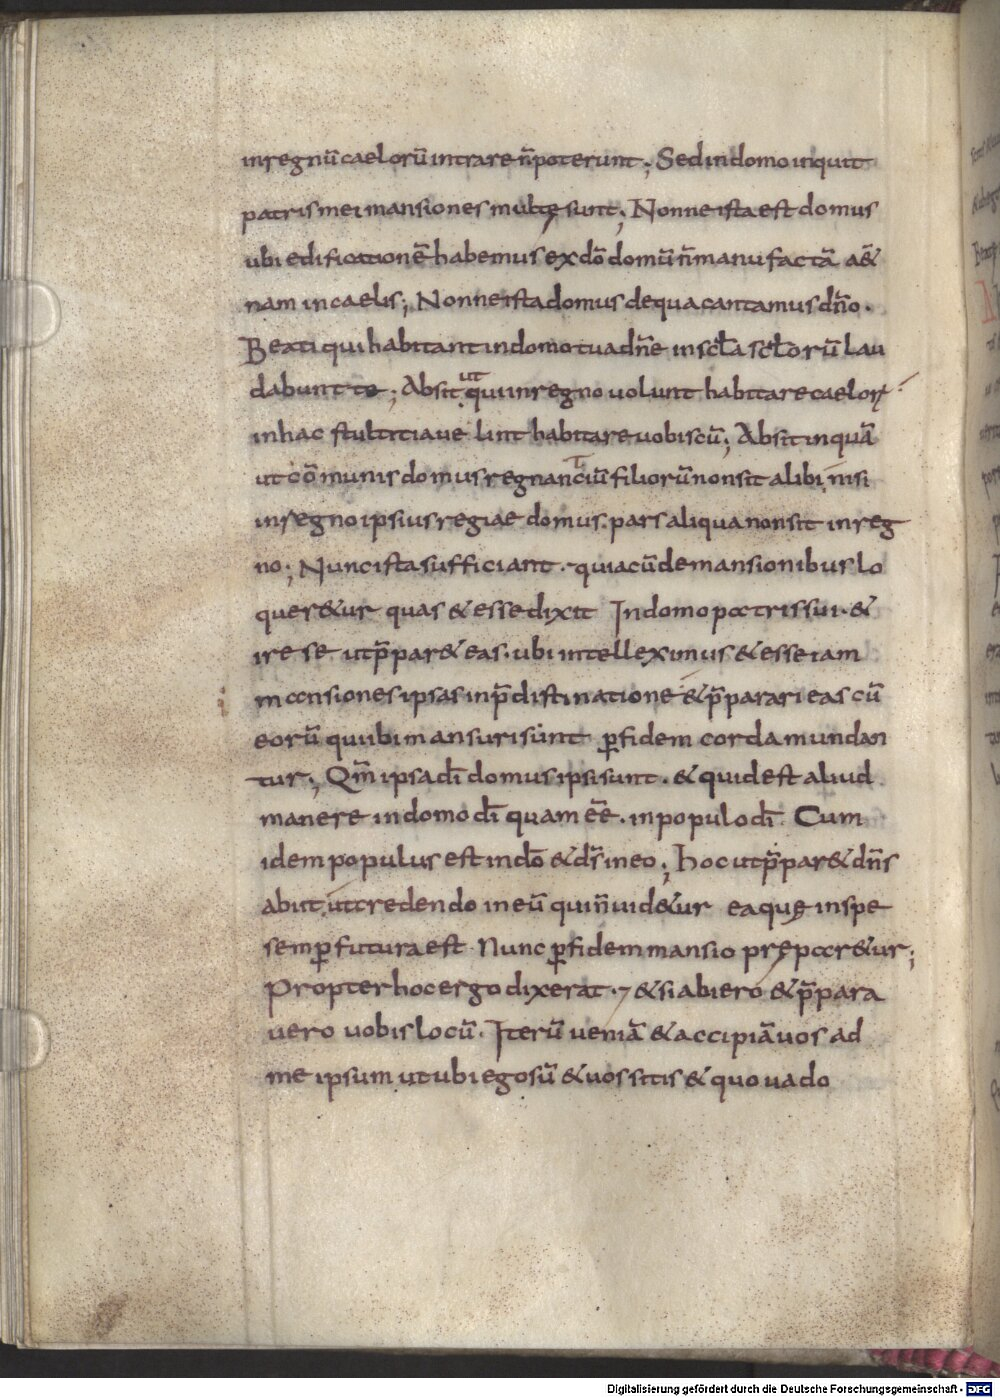 inregnū caelorū intrare n̄ poterunt; Sed in domo inquit
patris mei mansiones multę sunt; Nonne ista est domus
ubi edificationē habemus ex dō domū n̄ manufactā a&
nam in caelis; Nonne ista domus de qua cantamus dn̄o.
Beati qui habitant in domo tua dn̄e in scl̄a scl̄orū lau
dabunt te; Absit ut qui in regno uolunt habitare caelorꝝ
in hac stultitia uelint habitare uobiscū; Absit inquā
ut cōmunis domus regnantiū filiorū non sit alibi nisi
in regno ipsius regiae domus. pars aliqua non sit in reg
no; Nunc ista sufficiant. quia cū de mansionibus lo
quer&ur quas & esse dixit In domo patris sui. &
ire se ut p̄par& eas. ubi intelleximus & esse iam
mansiones ipsas in p̄distinatione & p̄parari eas cū
eorū qui ibi mansuri sunt ꝑ fidem corda mundan
tur; Qm̄ ipsa dī domus ipsi sunt. & quid est aliud
manere in domo dī quam eē̄. in populo dī Cum
idem populus est in dō & ds̄ in eo; hoc ut p̄par& dn̄s
abiit ut credendo in eū qui n̄ uid&ur ea quę in spe
semꝑ futura est Nunc ꝑ fidem mansio prępar&ur;
Propter hoc ergo dixerat. & si abiero & p̄para
uero uobis locū. Iterū ueniā & accipiā uos ad
me ipsum ut ubi ego sū & uos sitis & quo uado
Digitalisierung gefördert durch die Deutsche Forschungsgemeinschaft - DFG